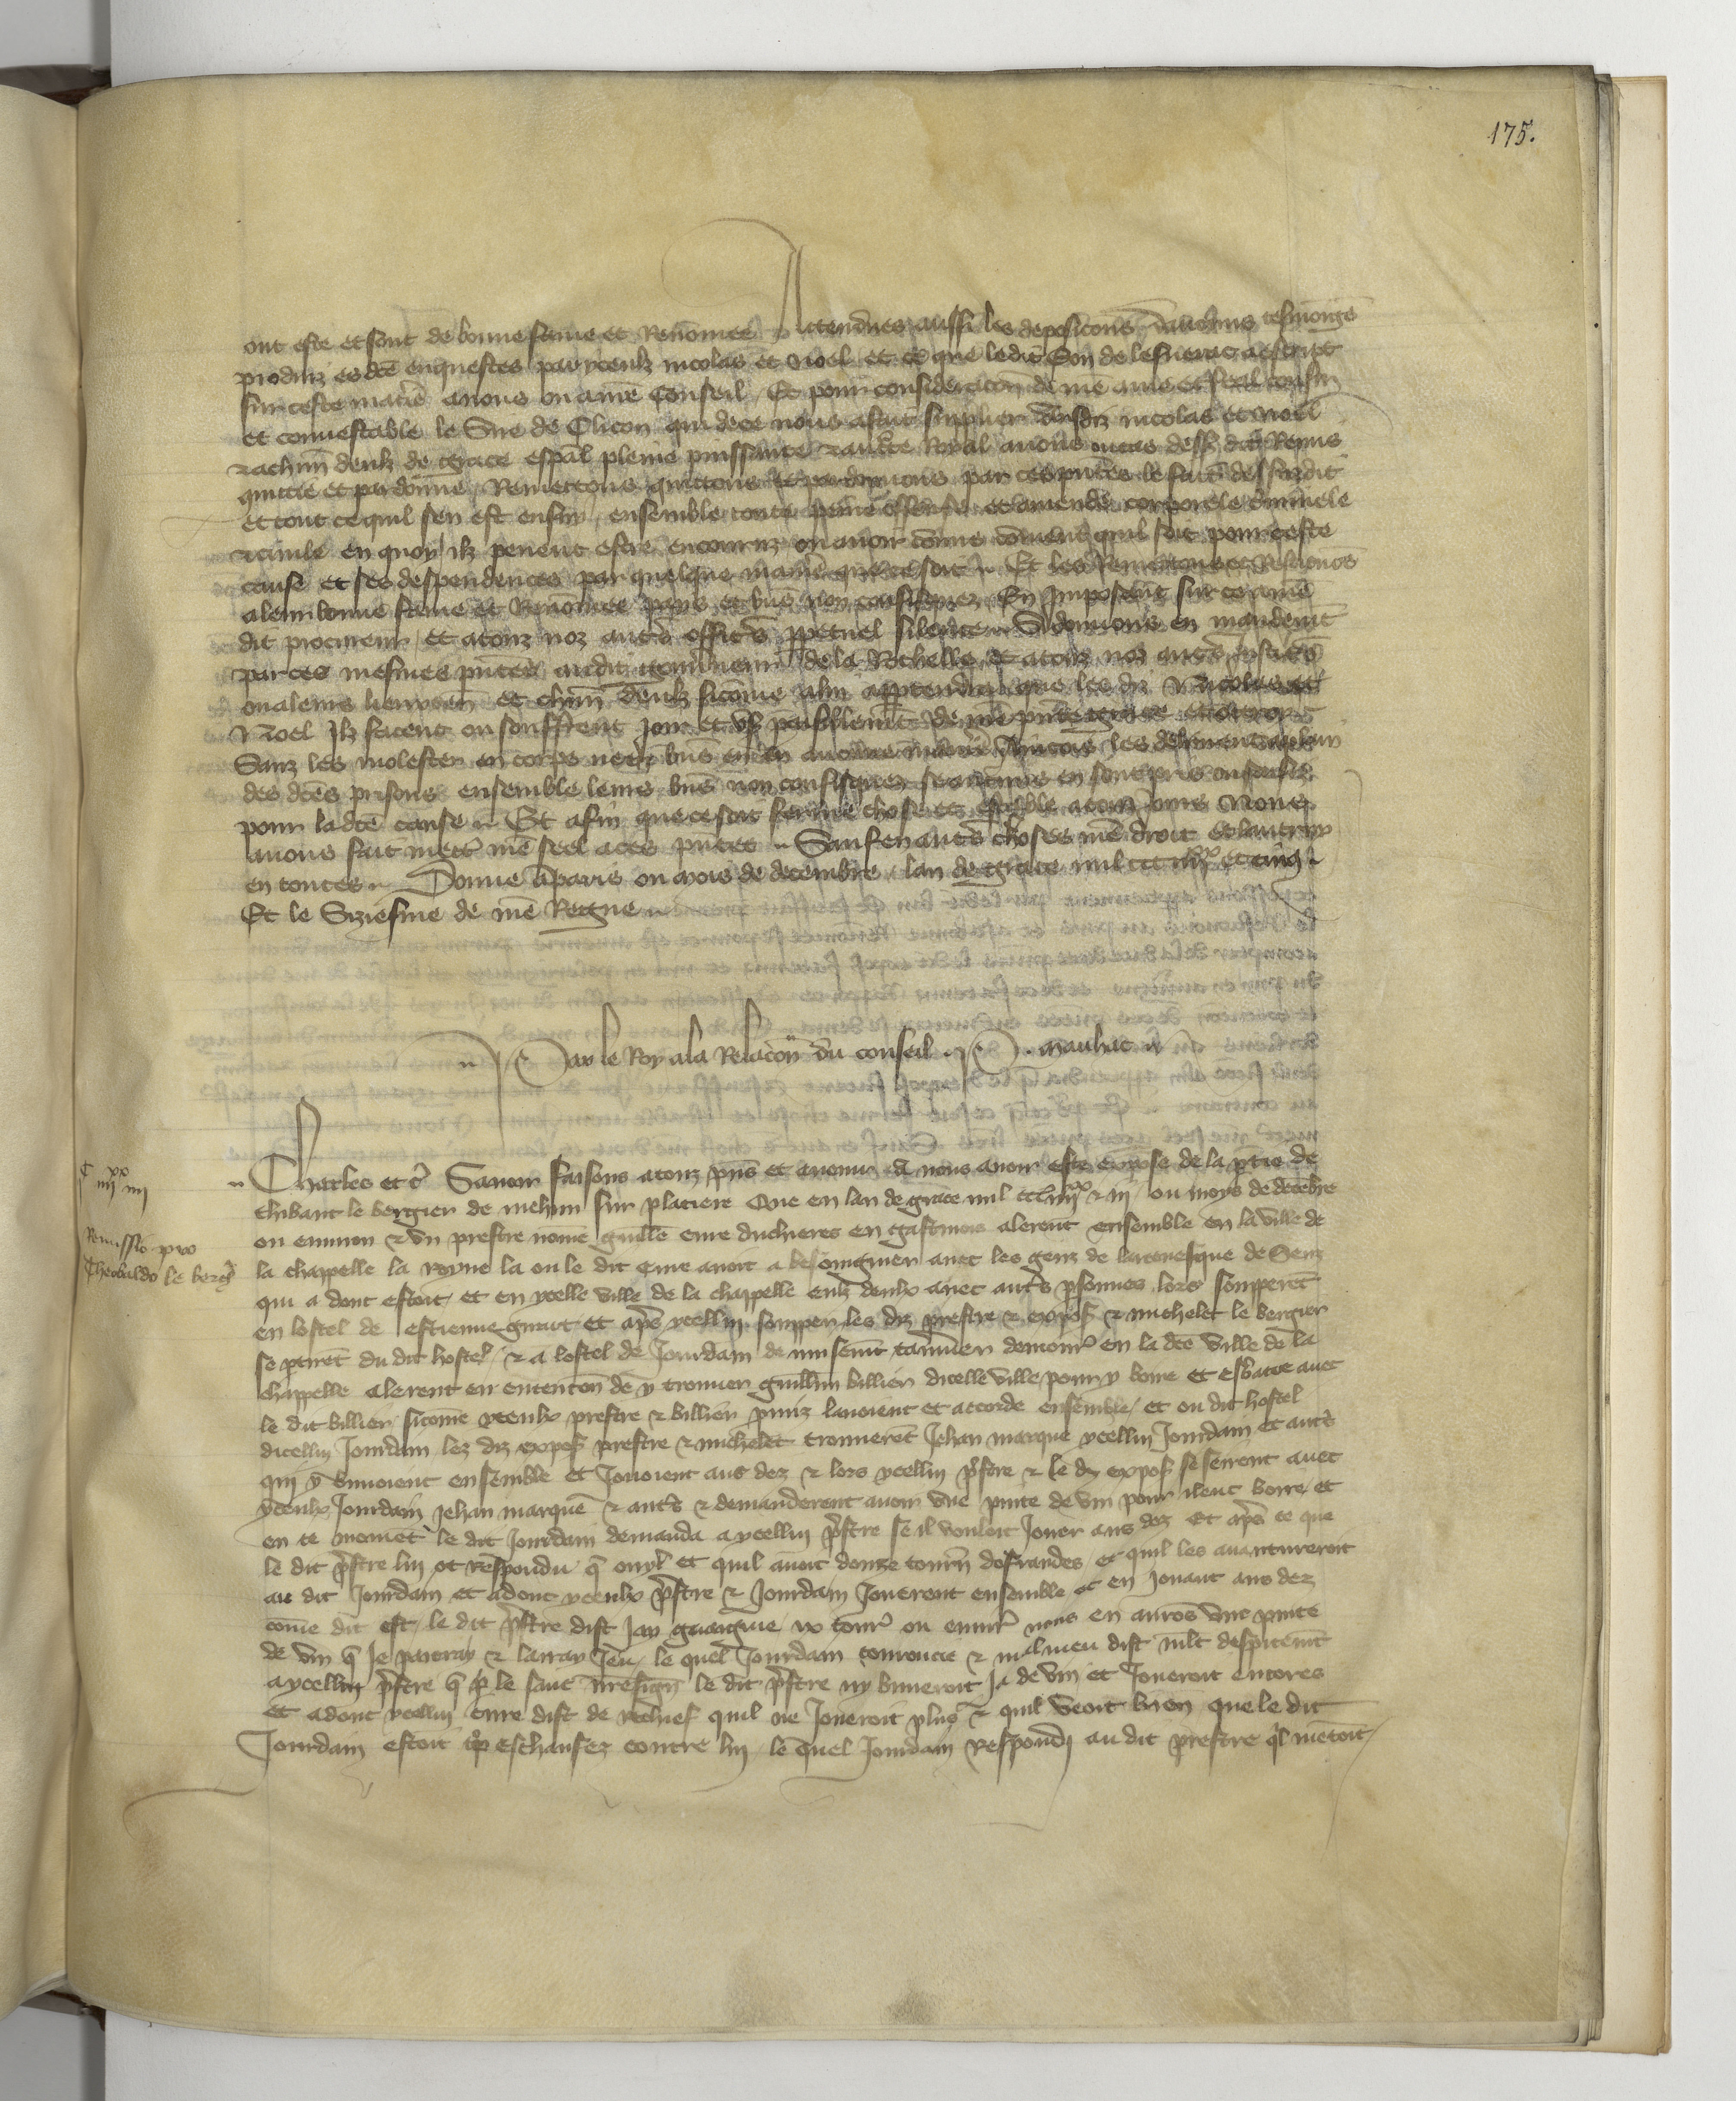 175.
ont este et sont de bonne fame et Renommee Attendues aussi les deposicons daucuns tesmoings
produiz es dces enquestes par yceulz nicolas et Noel et ce que ledit Son de lesnerac a escript
sur ceste matiere a nous ou a nre Conseil Et pour consideracon de nre ame et feal cousin
et connestable le Sire de Clicon qui de ce nous a fait supplier Ausdiz nicolas et Noel
et a chun deulz de grace espal pleine puissance et aucte Royal avons ou cas dessz dit Remis
quictie et pardonne Remettons quittons et pardonnons par ces pntes le fait dessusdit
et tout ce quil sen est ensui ensemble toute peine offense et amende corporele criminele
et civile en quoy ilz pevent estre encouruz ou avoir comme coment quil soit pour ceste
cause et ses despendences par quelque maniere que ce soit Et les Remettons et Restituons
a leur bonne fame et Renommee pays et biens non confisquez En Imposent sur ce a nre
dit procureur et a touz noz autres officiers ppetuel silence Si donnons en mandemt
par ces mesmes pntes audit gouverneur de la Rochelle et a touz noz autres Justiciers
ou a leurs lieuxten et chun deulz sicomme a lui appartendra que les diz Nicolas et
Noel Ilz facent ou souffrent Joir et user paisiblement de nre pnte grace et octroy
Sanz les molester en corps ne en biens en en aucune maniere Aincois les delivrent a plain
des dces prisons ensemble leurs biens non confisquez se aucuns en sont pris ou saisiz
pour ladce cause Et afin que ce soit ferme chose et estable a touz Jours Nous
avons fait mettre nre seel a ces pntes Sauf en autres choses nre droit et lautruy
en toutes Donne a paris ou mois de decembre lan de grace mil ccc iiijxx et cinq
Et le Siziesme de nre Regne
Par le Roy a la Relacon du conseil Mauhac
C iiijxx iiij
Remissio pro
Theobaldo le bergr
Charles etc Savoir faisons a touz pns et avenir a nous avoir este expose de la ptie de
thibaut le bergier de mehun sur placiere Que en lan de grace mil ccc iiijxx et iij ou moys de decebre
ou environ et un prestre nomme guille cure duchieres en gastinois alerent ensemble en la ville de
la chappelle la royne la ou le dit cure avoit a besoingnier avec les genz de larcevesque de Senz
qui a dont estoit et en ycelle ville de la chappelle eulz deulx avec autres psonnes lors souperet
en lostel de estienne guiut et aps ycellui soupper les diz prestre et expos et michelet le bergier
se ptiret du dit hostel et a lostel de Jourdain de demour en la dce ville de la
chappelle alerent en entencon de y trouver guillin billier dicelle ville pour y boire et esbatre avec
le dit billier sicome yceulx prestre et billier pmiz lavoient et accorde ensemble et ou dit hostel
dicellui Jourdain lez diz expos prestre et michelet trouveret Jehan marque ycellui Jourdain et autres
qui y buvoient ensemble et Jouoient aus dez et lors ycellui pstre et le dit expos se sirent avec
yceulx Jourdain Jehan marque et autres et demanderent avoir une pinte de vin pour ilenc boire et
en ce momet le dit Jourdain demanda a ycellui pstre se il vouloit Jouer aus dez Et aps ce que
le dit pstre lui ot Respondu q ouyl et quil avoit douze tourn doffrandes et quil les avantureroit
au dit Jourdain et adonc yceulx pstre et Jourdain Jouerent ensemble et en Jouant aus dez
come dit est le dit pstre dist Jay guaigne x tour ou envir nous en auros une pinte
de vin q Je paieray et lairay Jeu le quel Jourdain courroucie et malmeu dist mlt despitemt
a ycellui pstre q le sanc le dit pstre ny buveroit Ja de vin et Joueroit encores
Et adonc ycellui cure dist de rechief quil ne Joueroit plus et quil veoit bien que le dit
Jourdain estoit trop eschaufez contre lui le quel Jourdain respondi au dit prestre ql mentoit